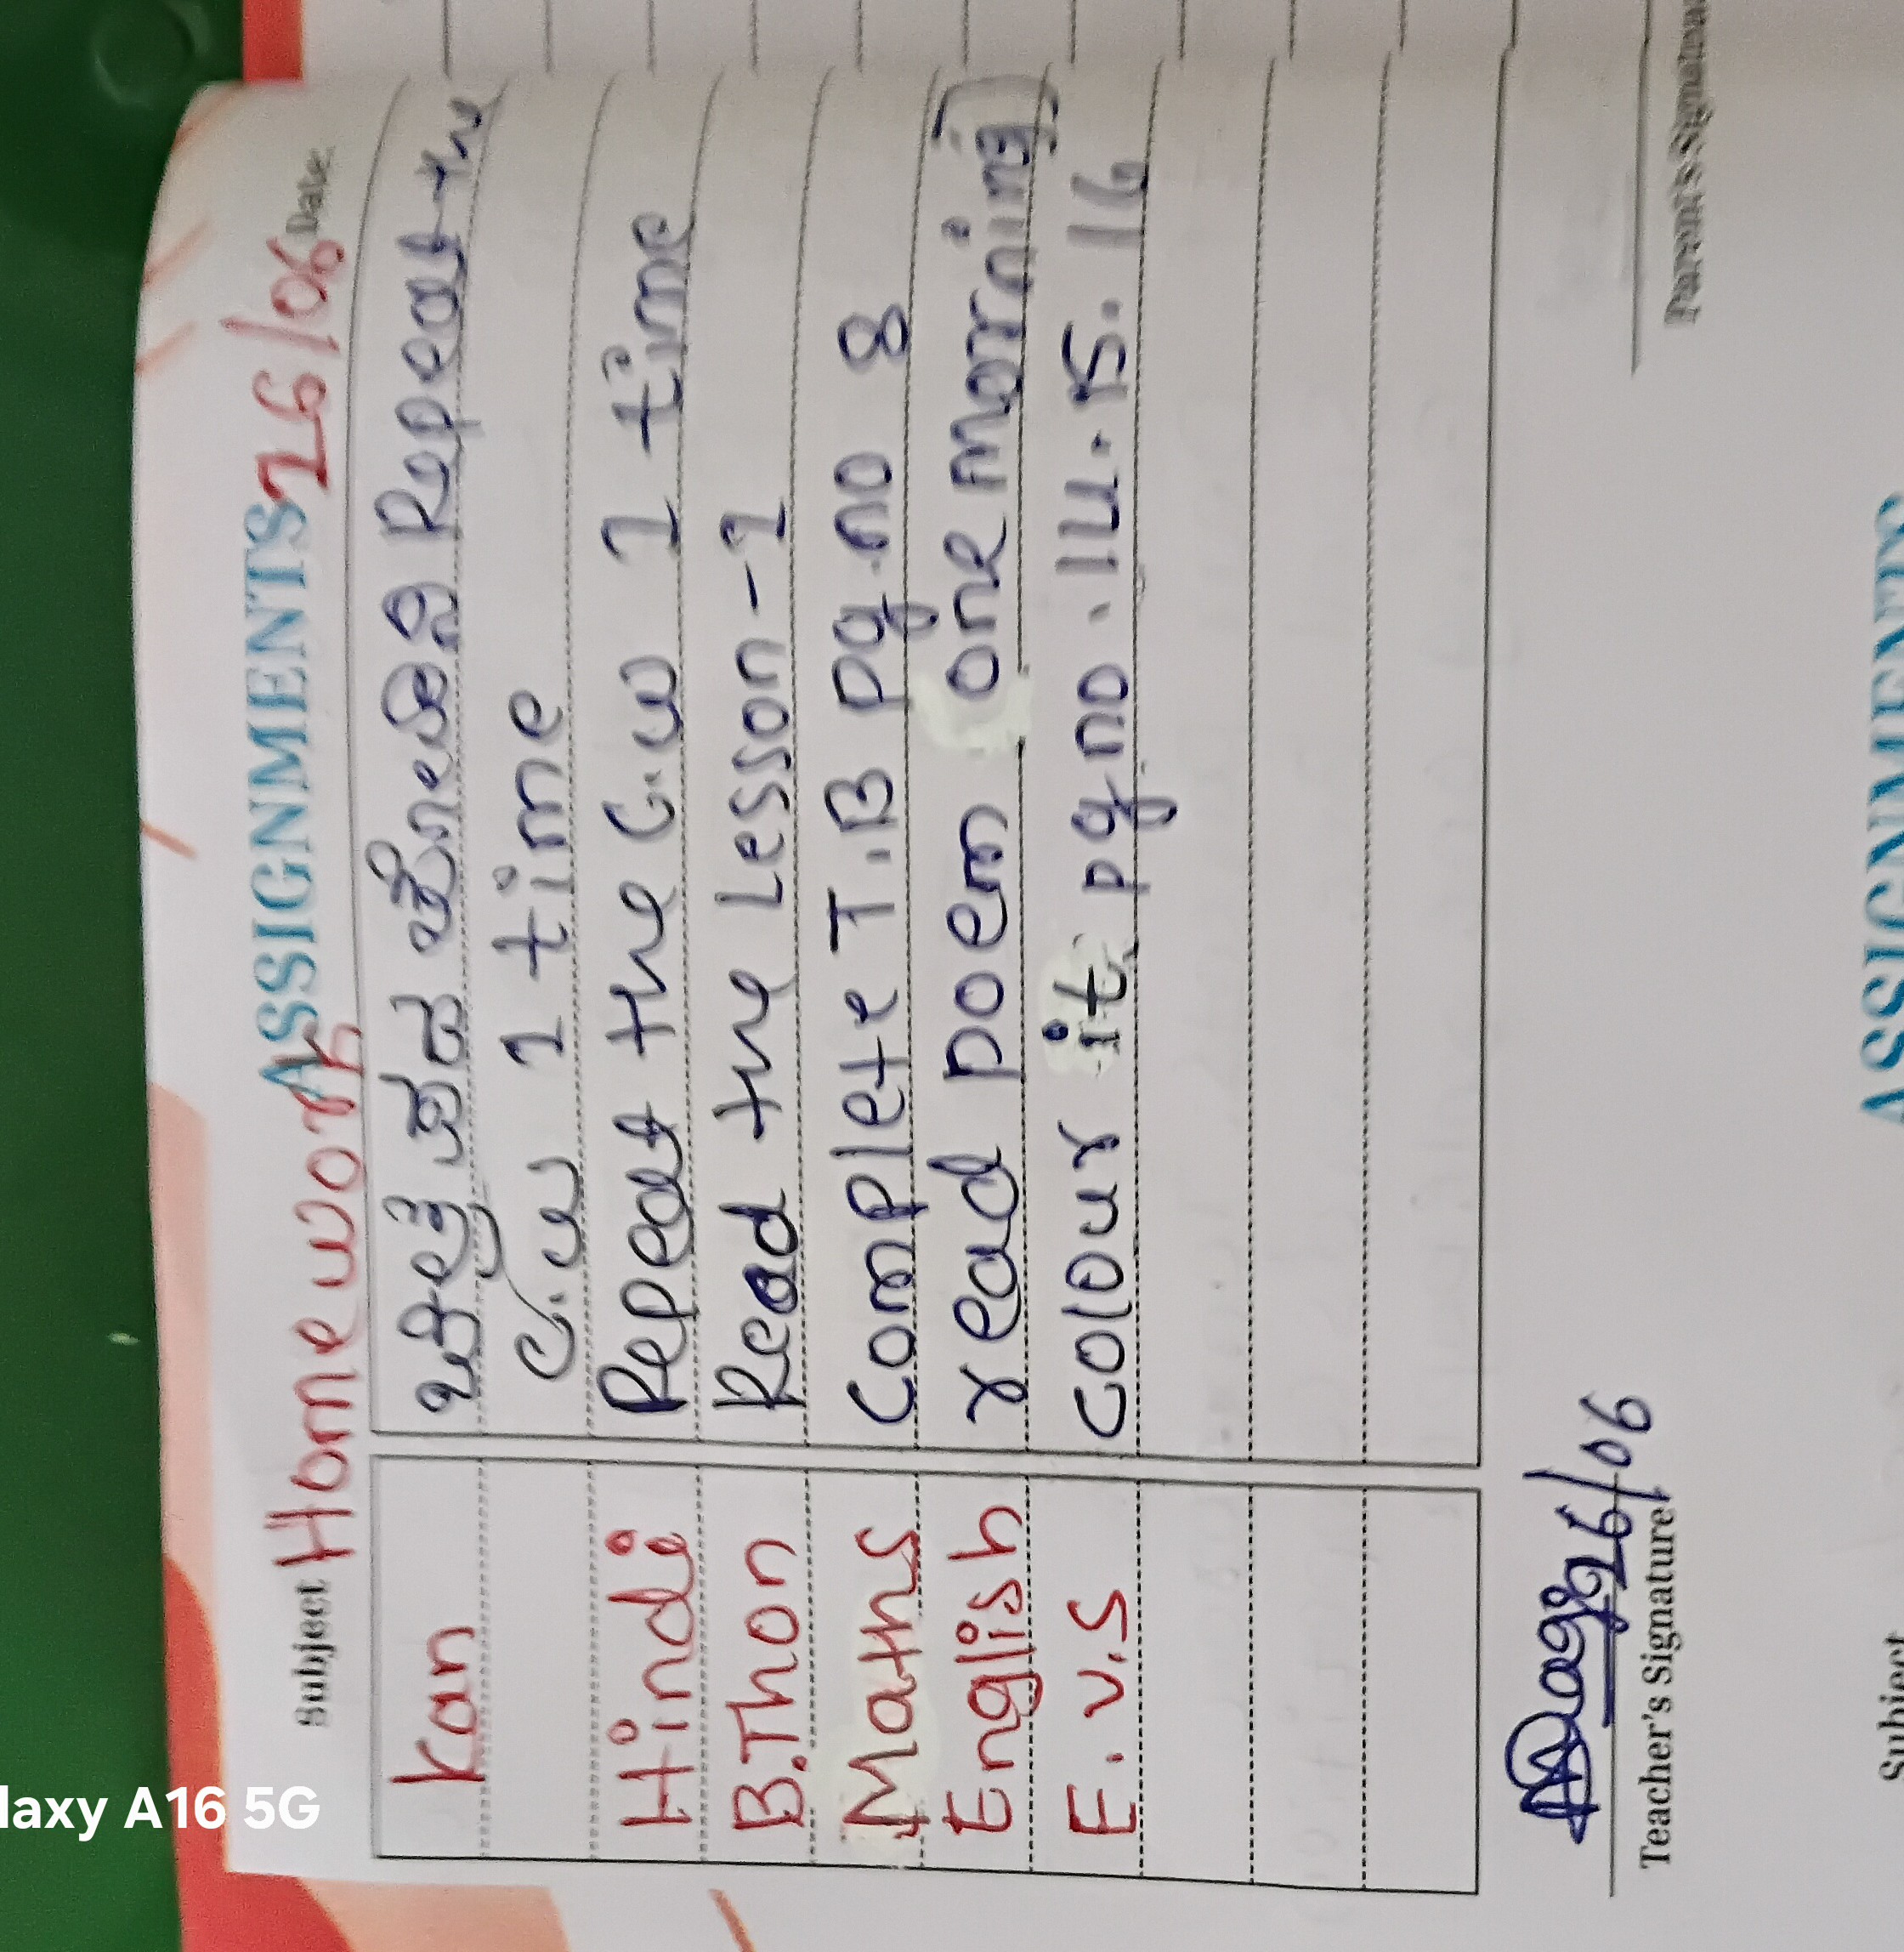 ASSIGNMENTS
Subject Home work 26/06 Date
Kan ಚಿತ್ರ ಪದ ಜೋಡಿಸಿ Repeat the
C.w 1 time
Hindi Repeat the C.w 1 time
B.Thon Read the Lesson-1
Maths Complete T.B pg.no 8
English read poem one morning
E.V.S colour it pg no. 14.15.16
26/06
Teacher's Signature
Parent's Signature
ASSIGNMENTS
Subject
laxy A16 5G